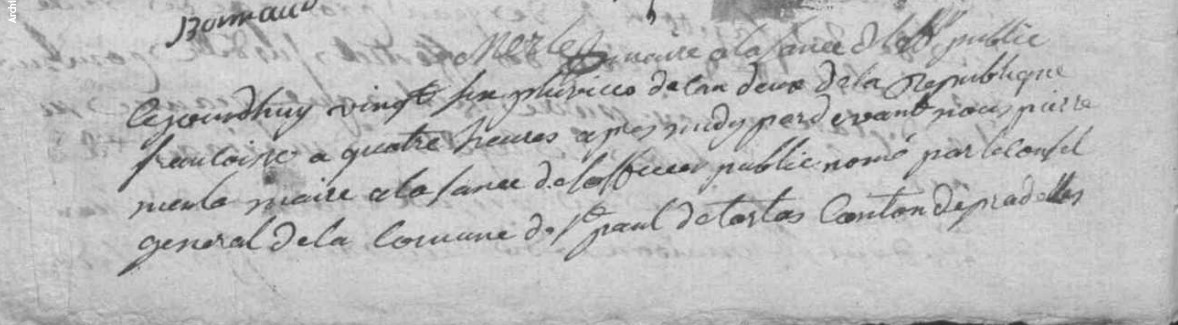 Archi
Bonnaud
Merle maire a la sance de loff public
Cejourdhuy vingt six pluvico de lan deux de la Republique
francoise a quatre heures apres midy pardevant nous pierre
merle maire a la sance de lofficer public nomé par le consel
general de la Comune de st paul de tartas Canton de pradelles